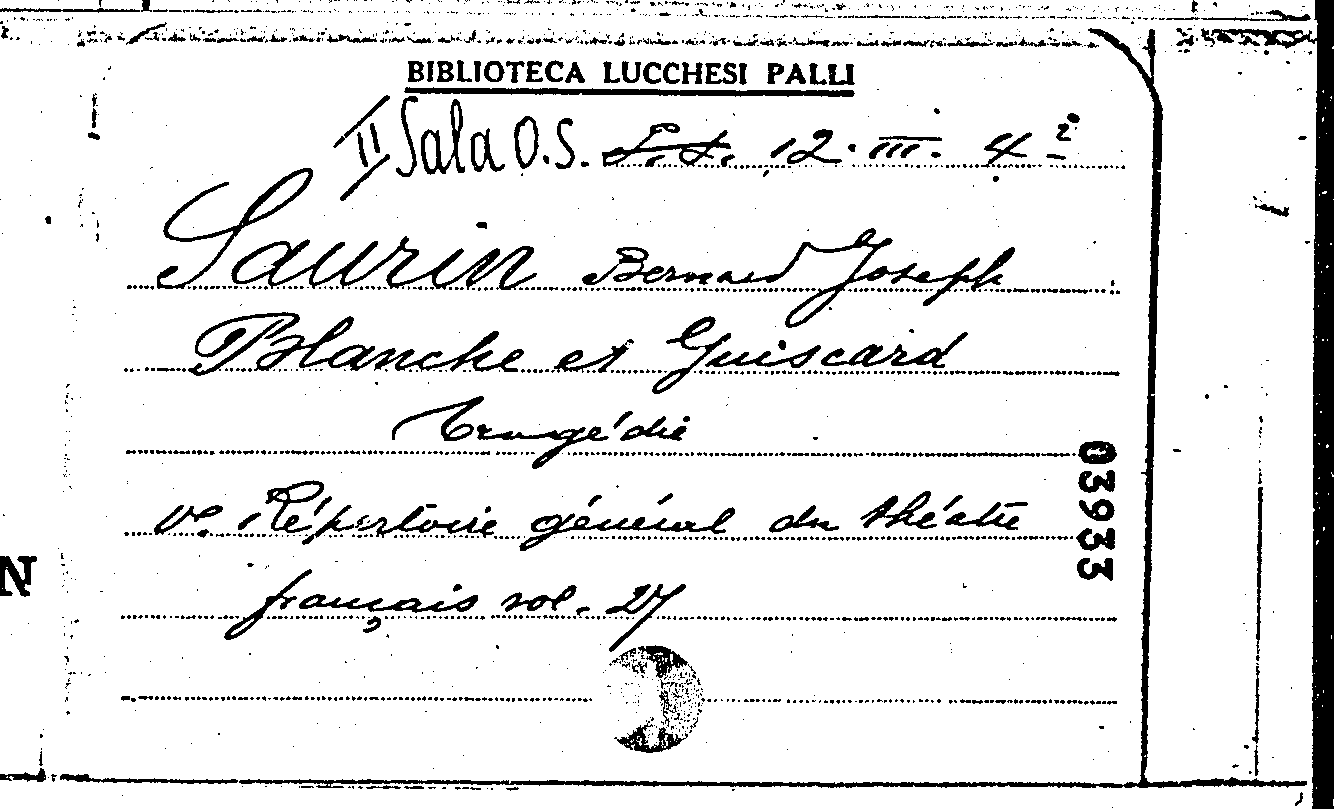 BIBLIOTECA LUCCHESI PALLI
II Sala O.S. L.L. 12. III. 4 2
Saurin Bernard Joseph
Blanche et Guiscard
Tragédie
ve. Répertoire général du théâtre
français vol. 27
03933
N